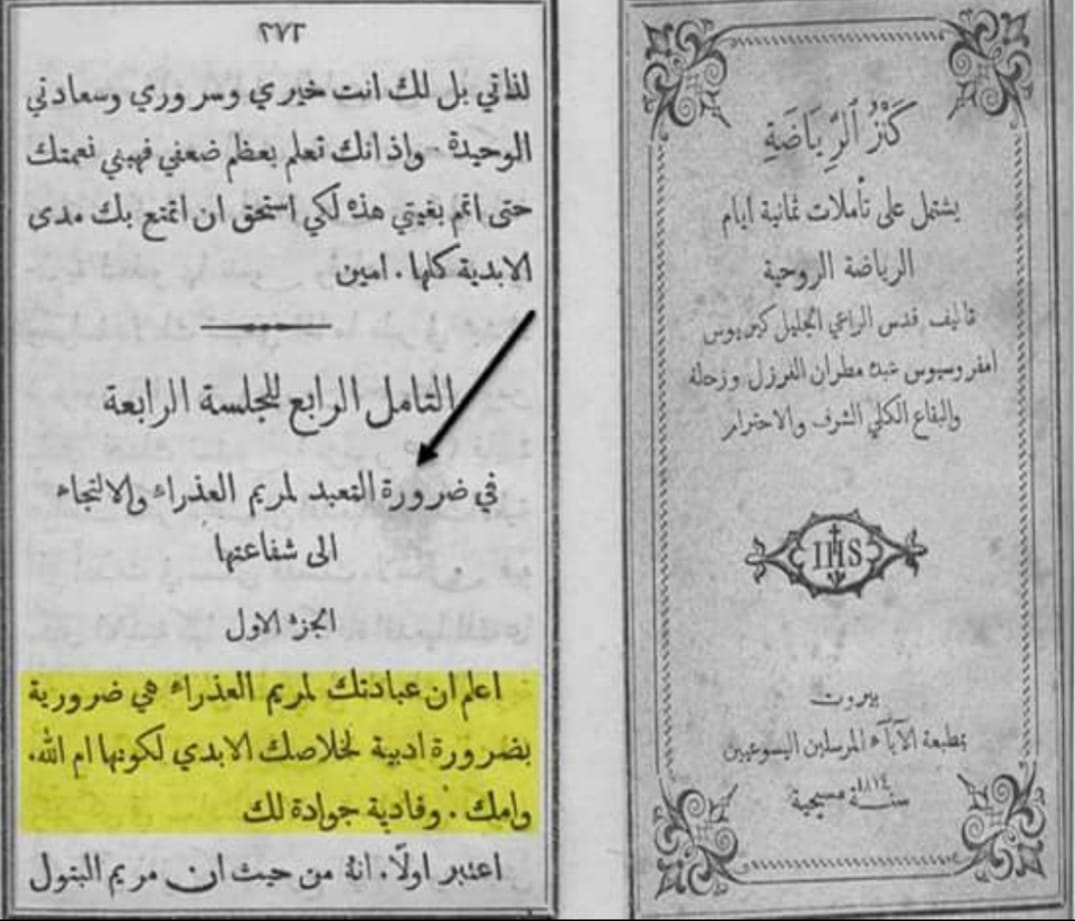 ٢٧٦
لذاتي بل لك انت خيري وسروري وسعادتي
الوحيدة . واذ انك تعلم بعظم ضعفي فهبني نعمتك
حتى اتم بغيتي هذه لكي استحق ان اتمتع بك مدى
الابدية كلها . امين
التامل الرابع للجلسة الرابعة
في ضرورة التعبد لمريم العذراء والالتجاء
الى شفاعتها
الجزء الاول
اعلم ان عبادتك لمريم العذراء هي ضرورية
بضرورة ادبية لخلاصك الابدي لكونها ام الله.
وامك . وفادية جوادة لك
اعتبر اولًا. انهُ من حيث ان مريم البتول
كَنْزُ ٱلرِّيَاضَةِ
يشتمل على تأملات ثمانية ايام
الرياضة الروحية
تاليف قدس الراعي الجليل كيريوس
امفروسيوس عبده مطران الفرزل وزحلة
والبقاع الكلي الشرف والاحترام
IHS
بيروت
بمطبعة الآباء المرسلين اليسوعيين
سنة ١٨٧٤ مسيحية